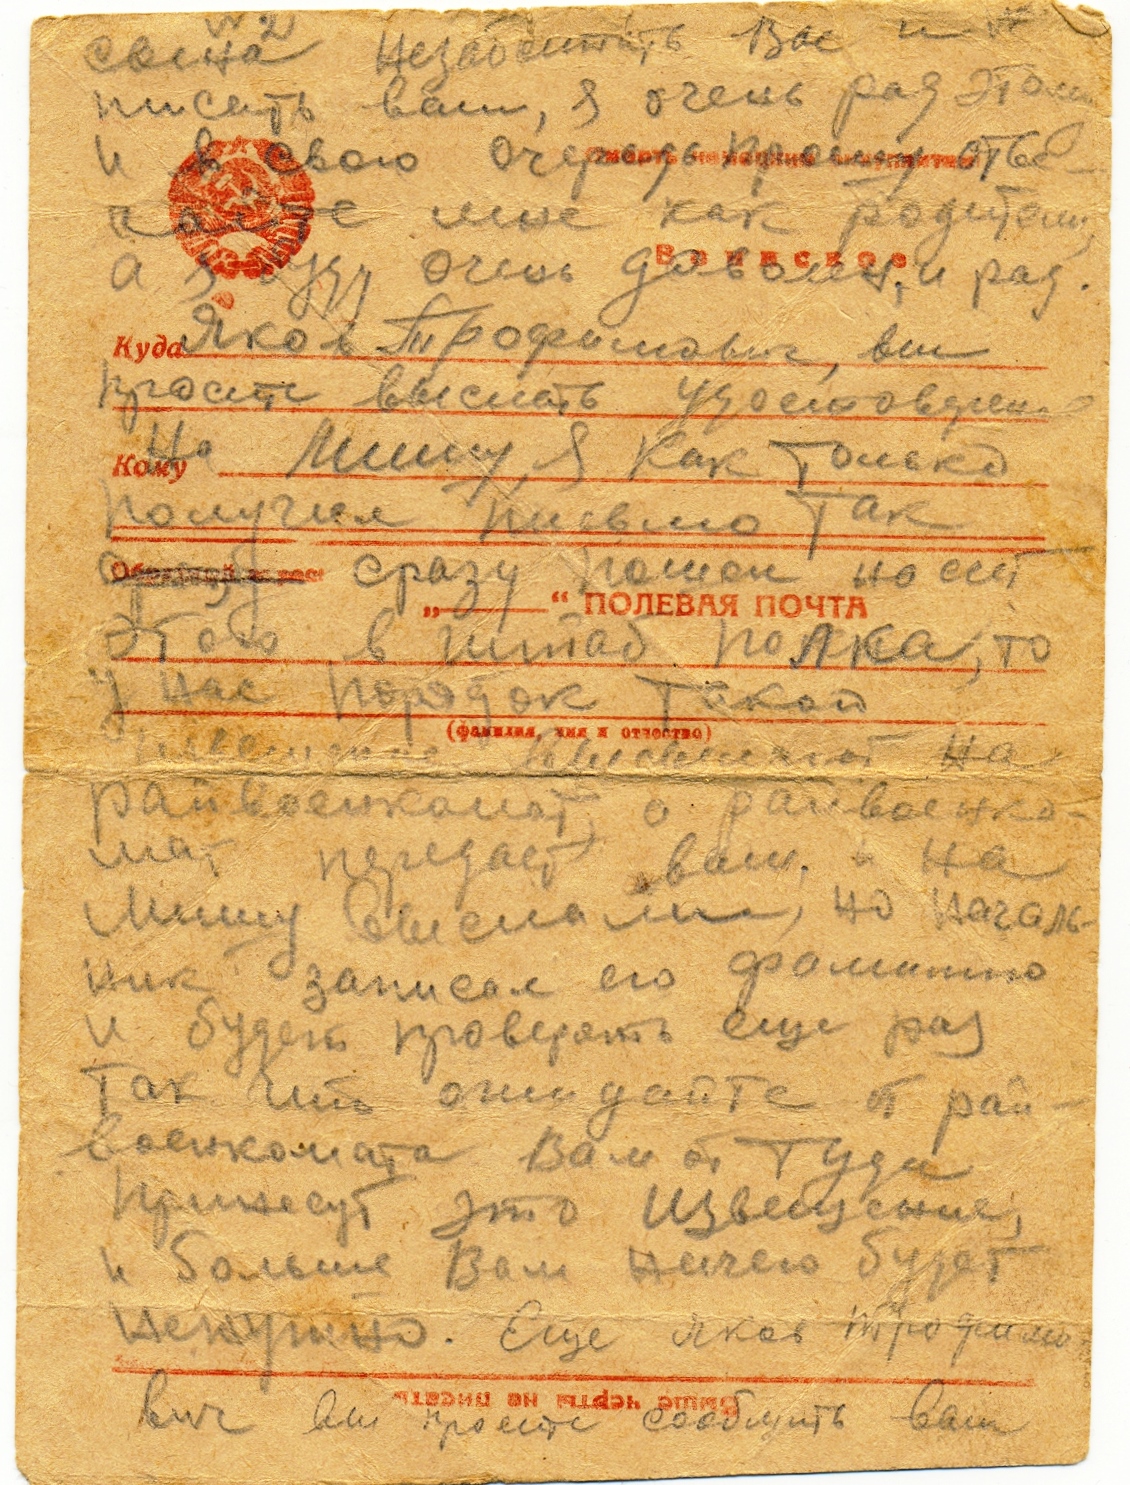 № 2
сына Незабывать Вас и
писать вам, я очень рад этом
и в свою очередь прошу отве-
Смерть немецким оккупантам
чайте мне как родителю,
Воинское
а я буду очень доволен, и рад.
Куда
Яков Трофимович, вы
просите выслать удостоверение
Кому
На Мишу, я как только
получил письмо так
сразу пошел насчет
„ “ ПОЛЕВАЯ ПОЧТА
этого в штаб полка, то
у нас порядок такой
(фамилия, имя и отчество)
извещение высылают на
райвоенкомат, а райвоенко-
мат передает вам, и на
Мишу выслали, но началь-
ник записал его фамилию
и будет проверять еще раз
так что ожидайте от рай-
военкомата Вам от туда
принесут это извещение,
и больше Вам ничего будет
ненужно. Еще Яков Трофимо-
Выше черты не писать
вич вы просите сообщить вам